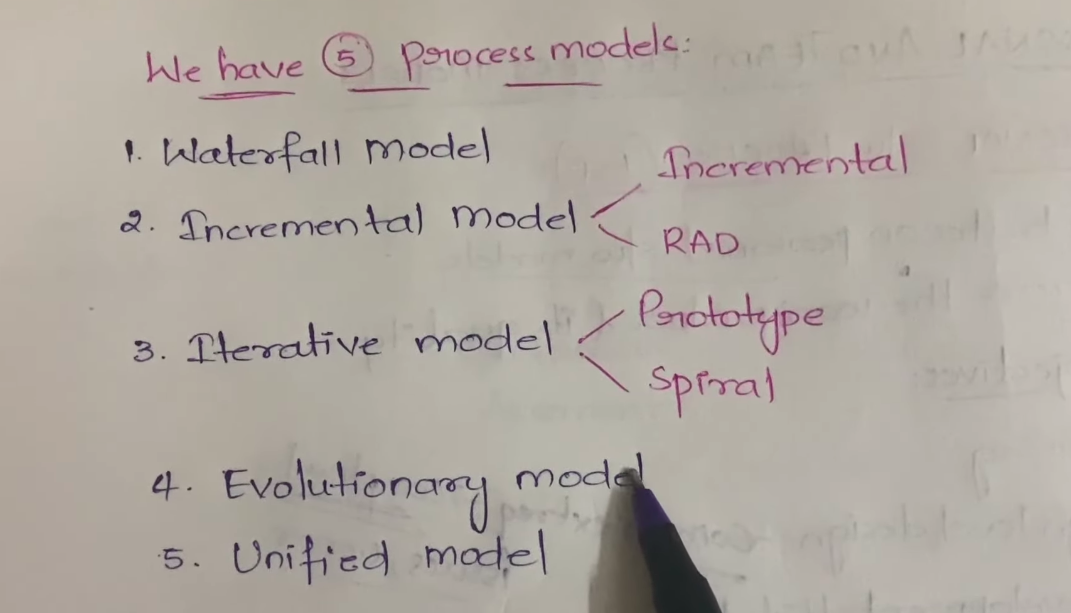 We have 5 process models:
1. Waterfall model
2. Incremental model
Incremental
RAD
3. Iterative model
Prototype
Spiral
4. Evolutionary model
5. Unified model